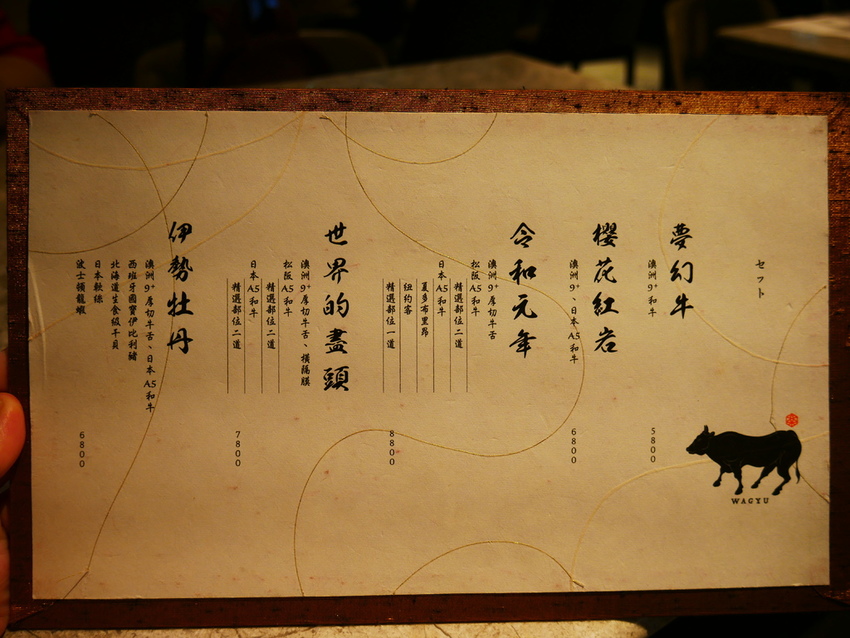 セット
夢幻牛
澳洲9⁺和牛
5800
櫻花紅岩
澳洲9⁺、日本A5和牛
6800
令和元年
澳洲9⁺厚切牛舌
松阪A5和牛
精選部位二道
日本A5和牛
夏多布里昂
紐約客
精選部位一道
8800
世界的盡頭
澳洲9⁺厚切牛舌、橫隔膜
松阪A5和牛
精選部位二道
日本A5和牛
精選部位二道
7800
伊勢牡丹
澳洲9⁺厚切牛舌、日本A5和牛
西班牙國寶伊比利豬
北海道生食級干貝
日本軟絲
波士頓龍蝦
6800
WAGYU